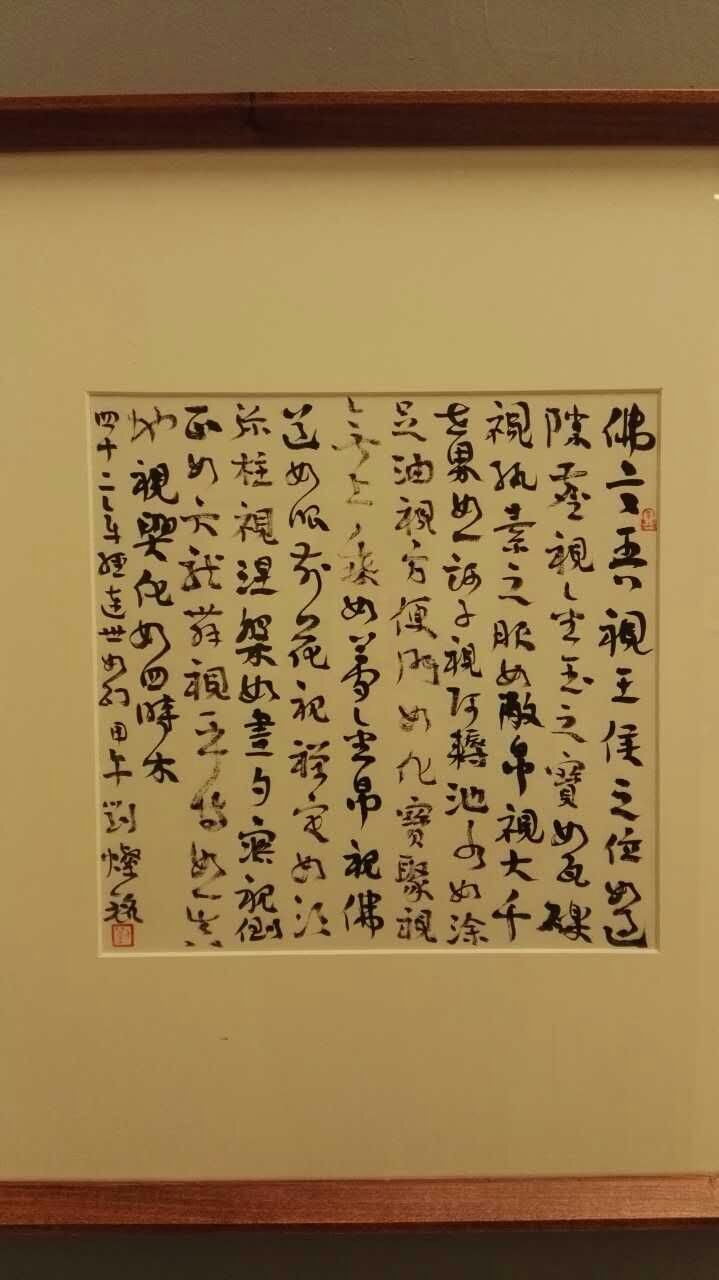 佛言吾視王侯之位如過
隙塵視金玉之寶如瓦礫
視紈素之服如敝帛視大千
世界如一訶子視阿耨池水如涂
足油視方便門如化寶聚視
無上乘如夢金帛視佛
道如眼前花視禪定如須
弥柱視涅槃如晝夕寤視倒
正如六龍舞視平等如一真
地視興化如四時木
四十二章經達世如幻甲午劉燦銘